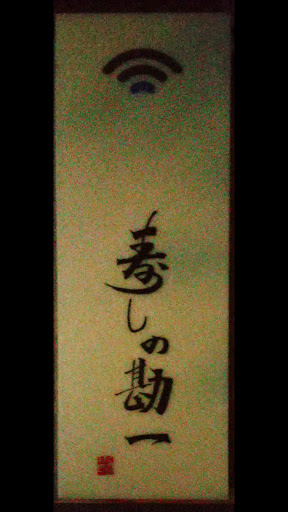 寿しの勘一